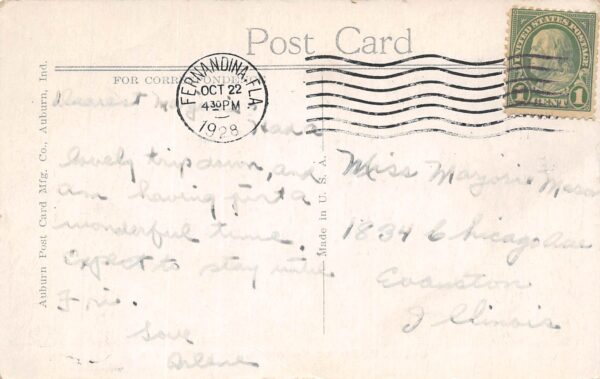 Post Card
FOR CORRESPONDENCE
FERNANDINA, FLA.
OCT 22
4 30 PM
1928
UNITED STATES POSTAGE
1 CENT 1
Auburn Post Card Mfg. Co., Auburn, Ind.
Made in U. S. A.
Dearest Marj. Had a
lovely trip down, and
am having just a
wonderful time.
Expect to stay until
Fri.
Love
Arlene
Miss Marjorie Mason
1834 Chicago Ave
Evanston
Illinois